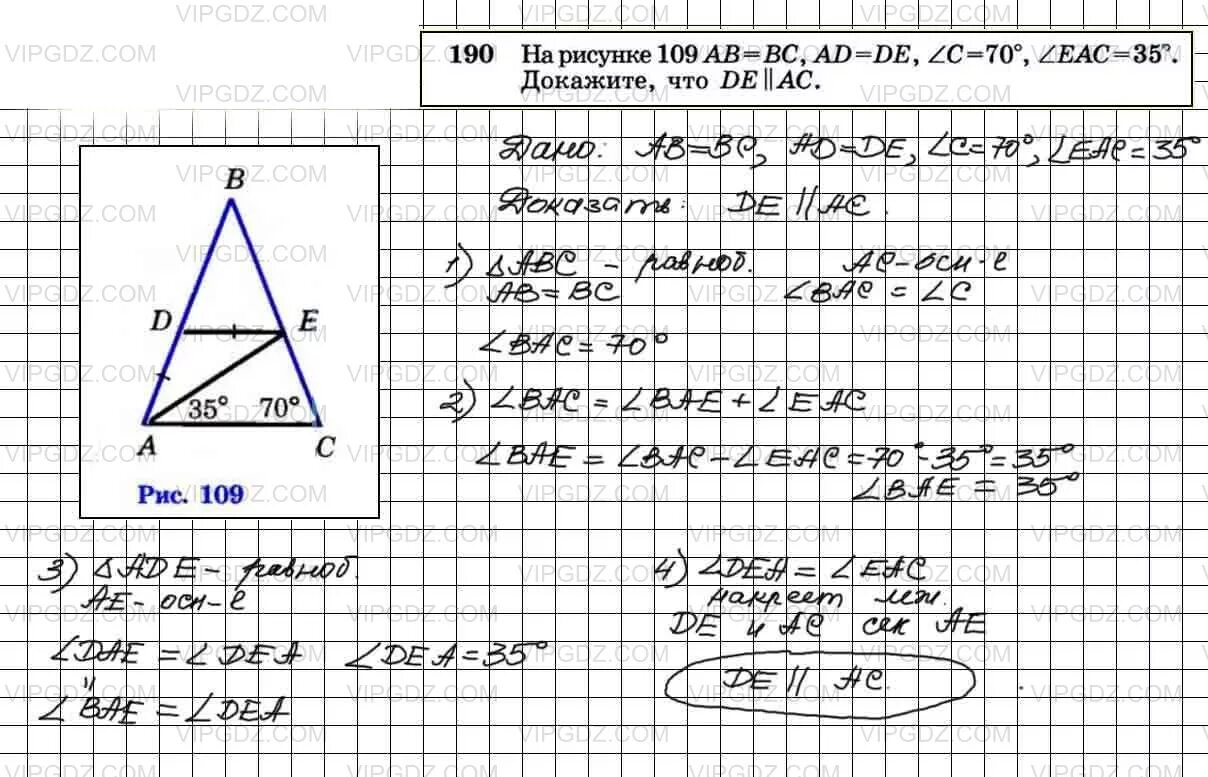 190 На рисунке 109 AB=BC, AD=DE, ∠C=70°, ∠EAC=35°.
Докажите, что DE ∥ AC.
B
D
E
35°
70°
A
C
Рис. 109
Дано: AB=BC, AD=DE, ∠C=70°, ∠EAC=35°
Доказать: DE ∥ AC.
1) △ABC – равноб. AC-осн-е
AB=BC ∠BAC = ∠C
∠BAC = 70°
2) ∠BAC = ∠BAE + ∠EAC
∠BAE = ∠BAC – ∠EAC = 70° - 35° = 35°
∠BAE = 35°
3) △ADE – равноб.
AE-осн-е
∠DAE = ∠DEA ∠DEA = 35°
"
∠BAE = ∠DEA
4) ∠DEA = ∠EAC
накрест леж.
DE и AC сек AE
DE ∥ AC.
VIPGDZ.COM